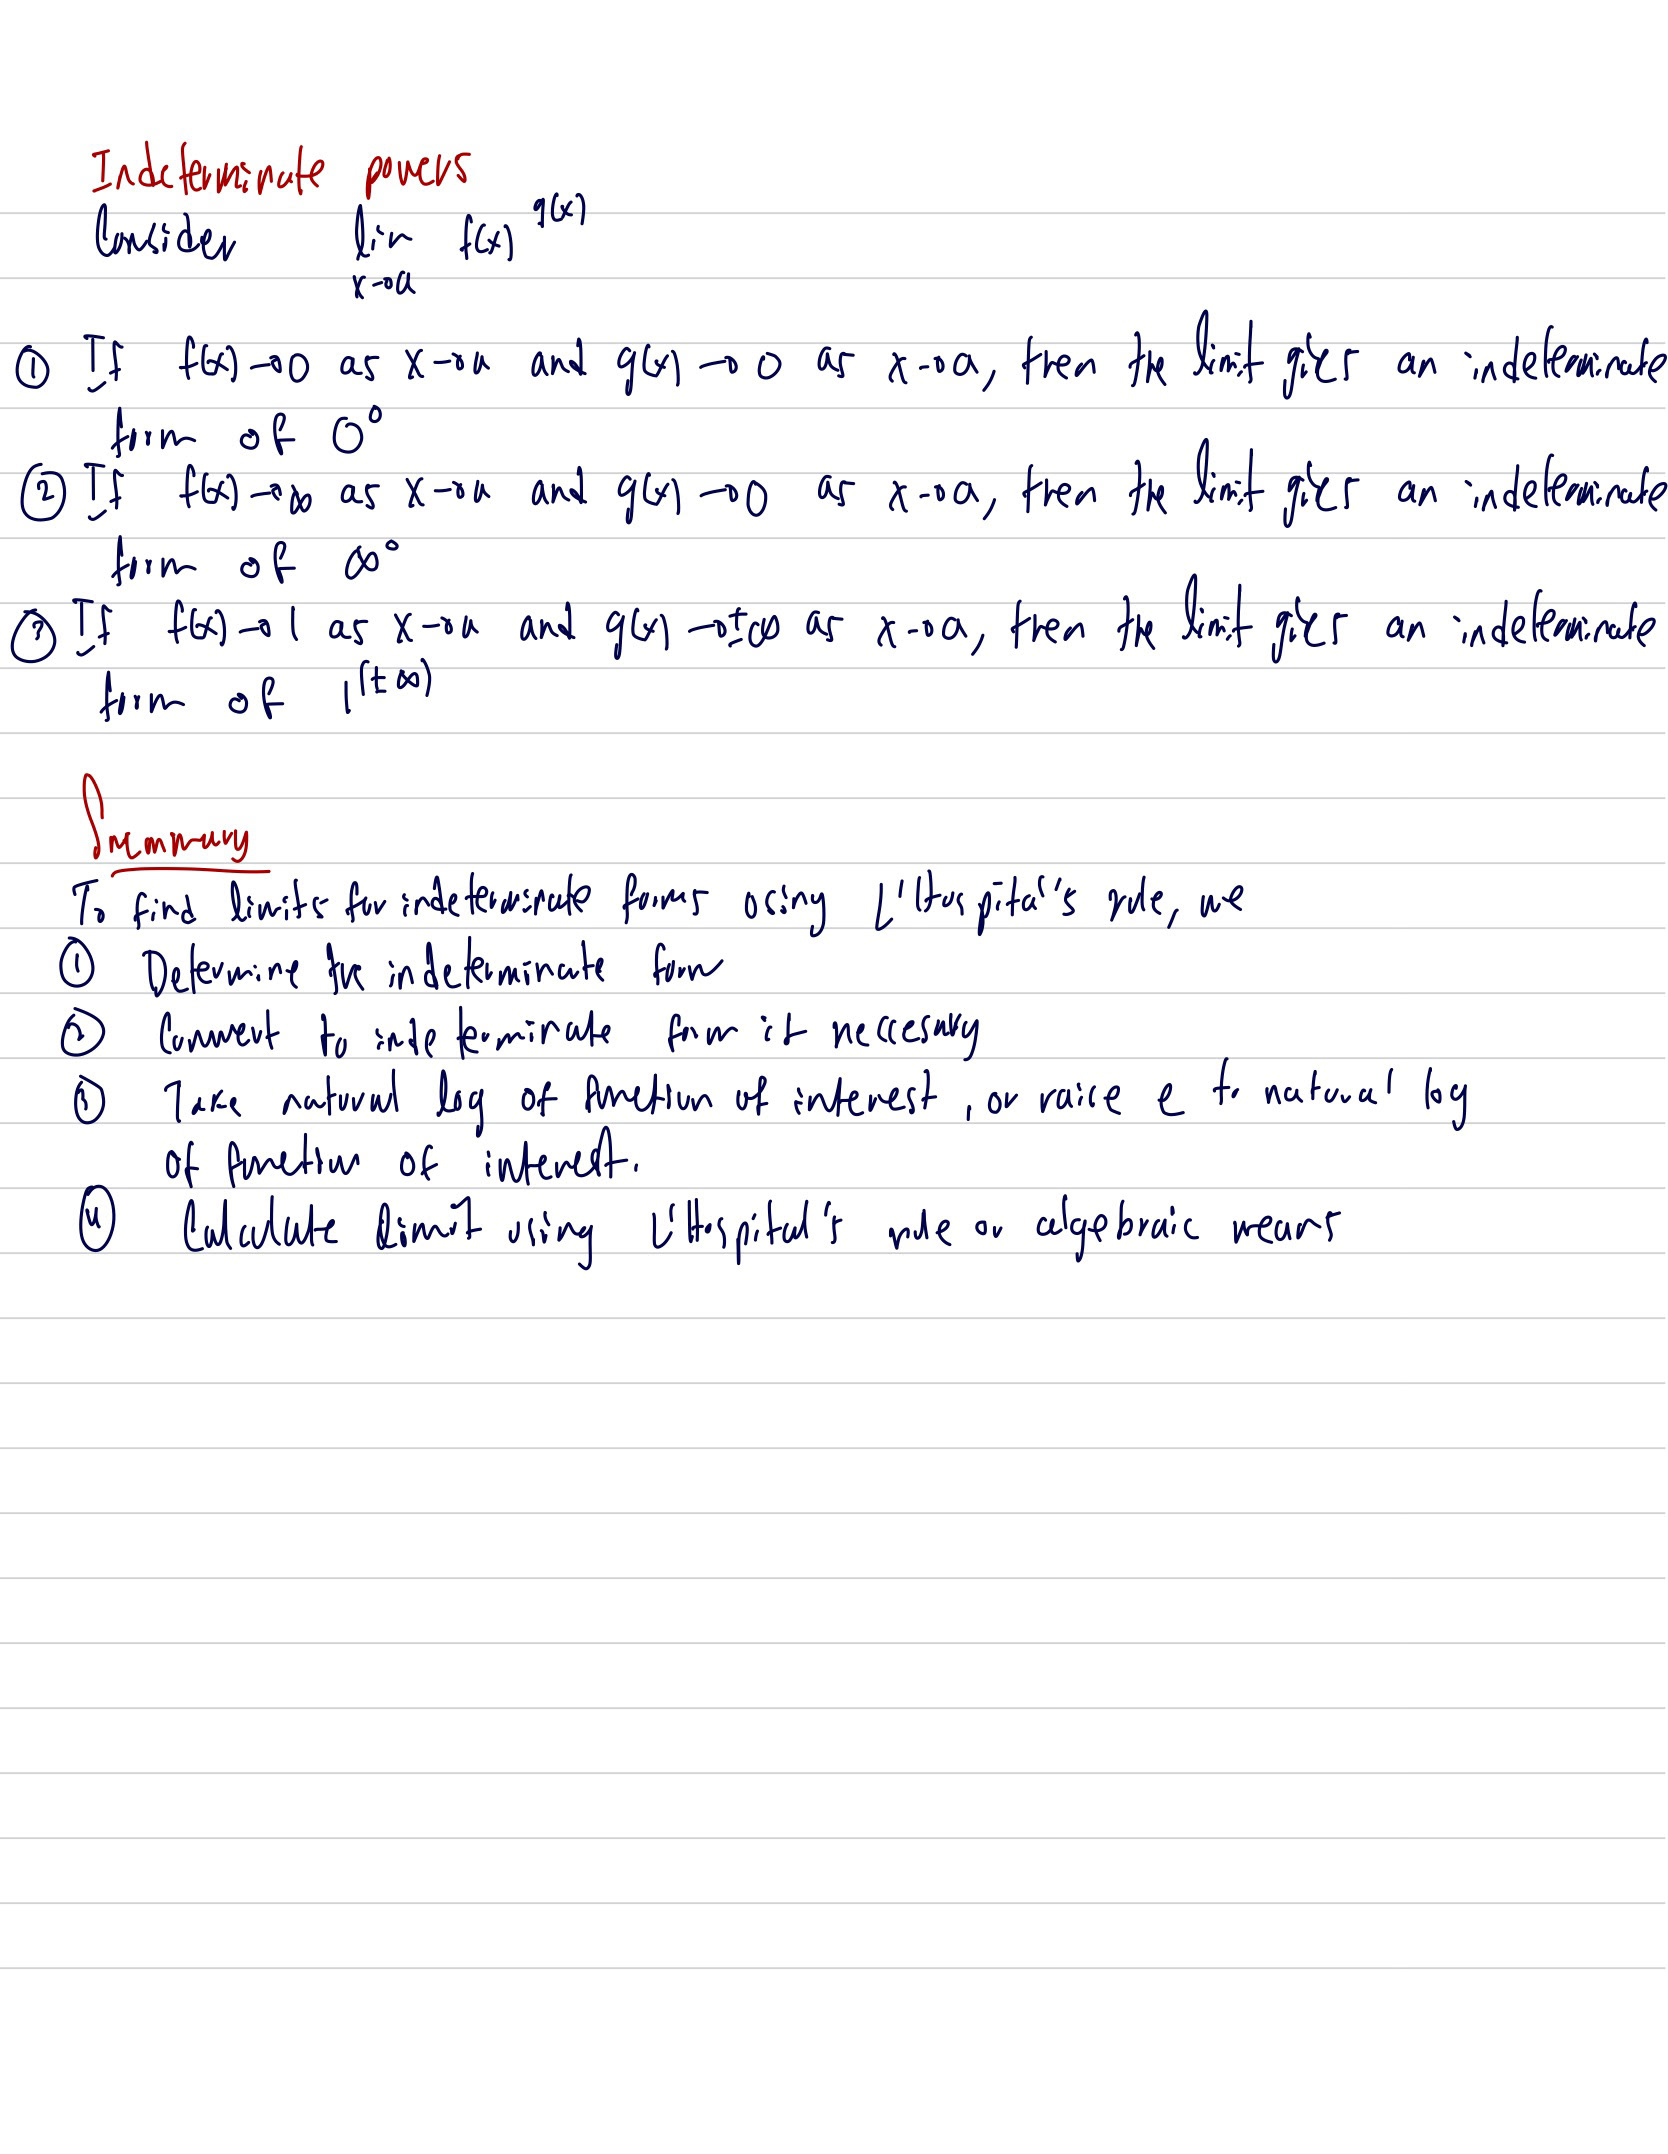 Indeterminate powers
Consider lim f(x)^g(x)
x→a
① If f(x)→0 as x→a and g(x)→0 as x→a, then the limit gives an indeterminate
form of 0⁰
② If f(x)→∞ as x→a and g(x)→0 as x→a, then the limit gives an indeterminate
form of ∞⁰
③ If f(x)→1 as x→a and g(x)→±∞ as x→a, then the limit gives an indeterminate
form of 1^(±∞)
Summary
To find limits for indeterminate forms using L'Hospital's rule, we
① Determine the indeterminate form
② Convert to indeterminate form if neccesary
③ Take natural log of function of interest, or raice e to natural log
of function of interest.
④ Calculate limit using L'Hospital's rule or algebraic means